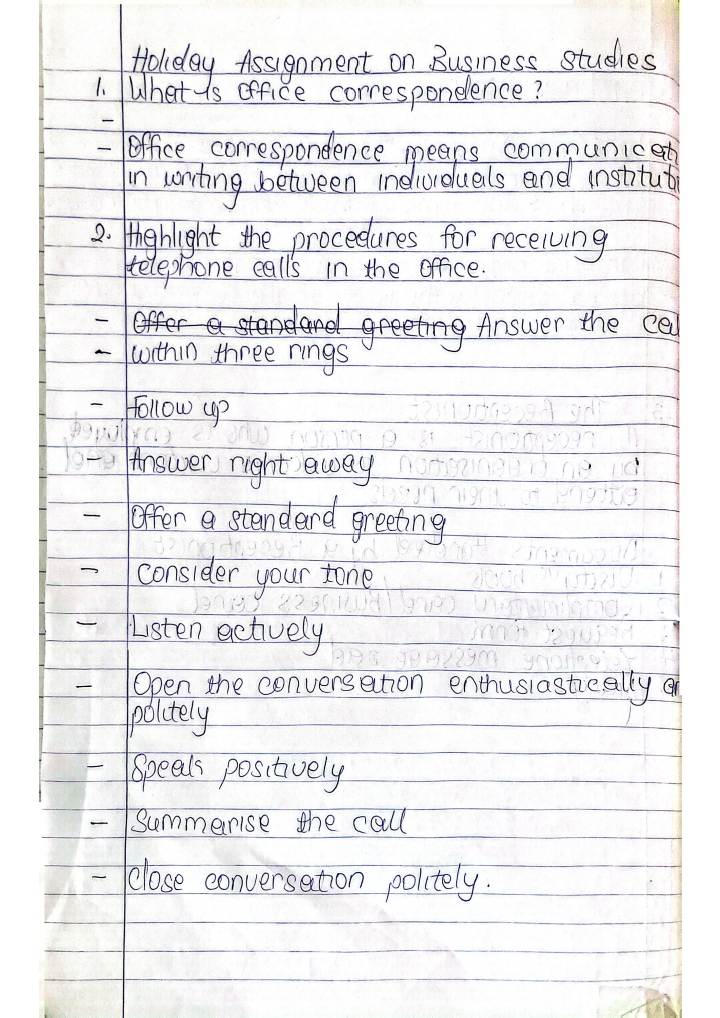 Holiday Assignment on Business Studies
1. What is office correspondence?
-
- Office correspondence means communicat
in writing between individuals and institut
2. Highlight the procedures for receiving
telephone calls in the office.
- Offer a standard greeting Answer the cal
- within three rings
- Follow up
- Answer right away
- Offer a standard greeting
- Consider your tone
- Listen actively
- Open the conversation enthusiastically an
politely
- Speak positively
- Summarise the call
- Close conversation politely.